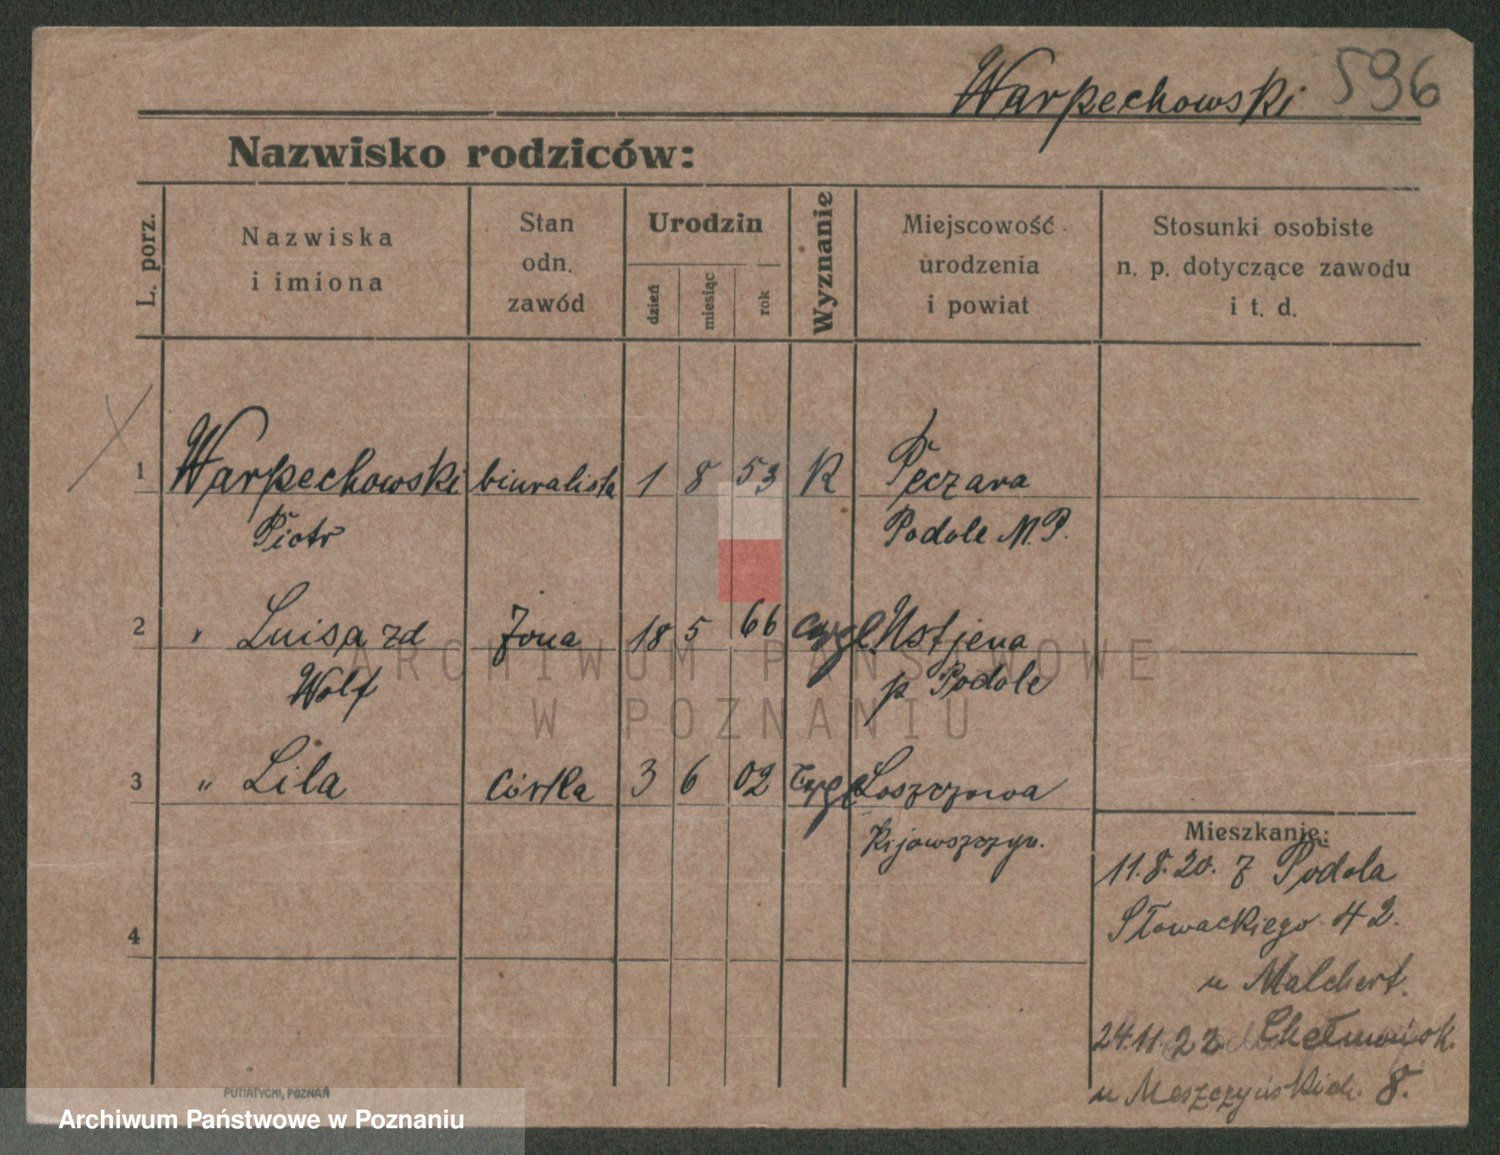 Warpechowski 596
Nazwisko rodziców:
L. porz.
Nazwiska
i imiona
Stan
odn.
zawód
Urodzin
dzień
miesiąc
rok
Wyznanie
Miejscowość
urodzenia
i powiat
Stosunki osobiste
n. p. dotyczące zawodu
i t. d.
1 Warpechowski biuralista 1 8 53 K Pęczara
Piotr Podole M.P.
2 " Luisa zd żona 18 5 66 Ustjena
Wolf p Podole
3 " Lila córka 3 6 02
Kijowszczyn.
4
Mieszkanie:
11.8.20. z Podola
Słowackiego 42.
u Malchert.
24.11.22
u Moszczyńskich. 8.
PUTIATYCKI, POZNAŃ
ARCHIWUM PAŃSTWOWE
W POZNANIU
Archiwum Państwowe w Poznaniu